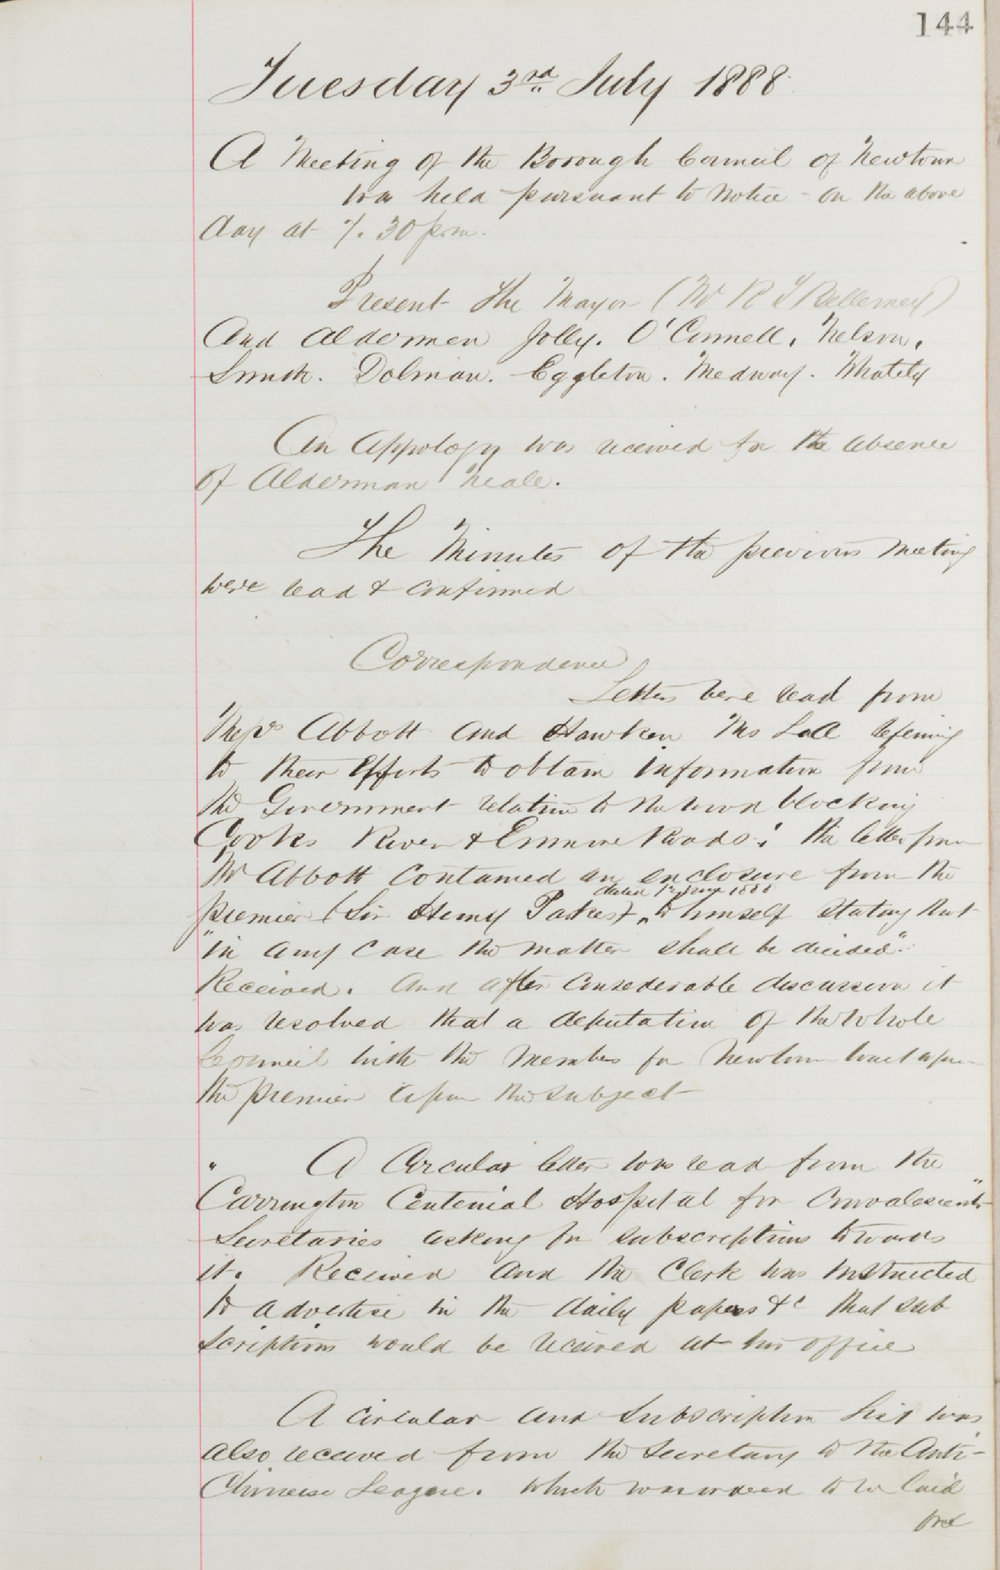 144
Tuesday 3rd July 1888
A Meeting of the Borough Council of Newtown
was held pursuant to notice - on the above
day at 7.30 pm.
Present The Mayor (Mr R T Bellemey)
And Aldermen Jolly. O'Connell. Nelson.
Smith. Dolman. Eggleton. Medway. Whately
An Appology was received for the absence
of Alderman Neale.
The Minutes of the previous Meeting
were read & confirmed
Correspondence
Letters were read from
Messrs Abbott and Hawken Ms L A referring
to their Efforts to obtain information from
the Government relative to the wood blocking
Cooks River & Enmore Roads: the letter from
Mr Abbott contained an enclosure from the
dated 1st June 1888
premier (Sir Henry Parkes) to himself stating that
"in any case the matter shall be decided".
Received. And after considerable discussion it
was resolved that a deputation of the whole
Council with the Members for Newtown wait upon
the premier upon the subject
" A Circular letter was read from the
Carrington Centenial Hospital for Convalescents
Secretaries asking for subscriptions towards
it. Received and the Clerk was instructed
to advertise in the daily papers &c that sub
scriptions would be received at his office
A circular and Subscription list was
also received from the Secretary to the Anti-
Chinese League. which was ordered to be laid